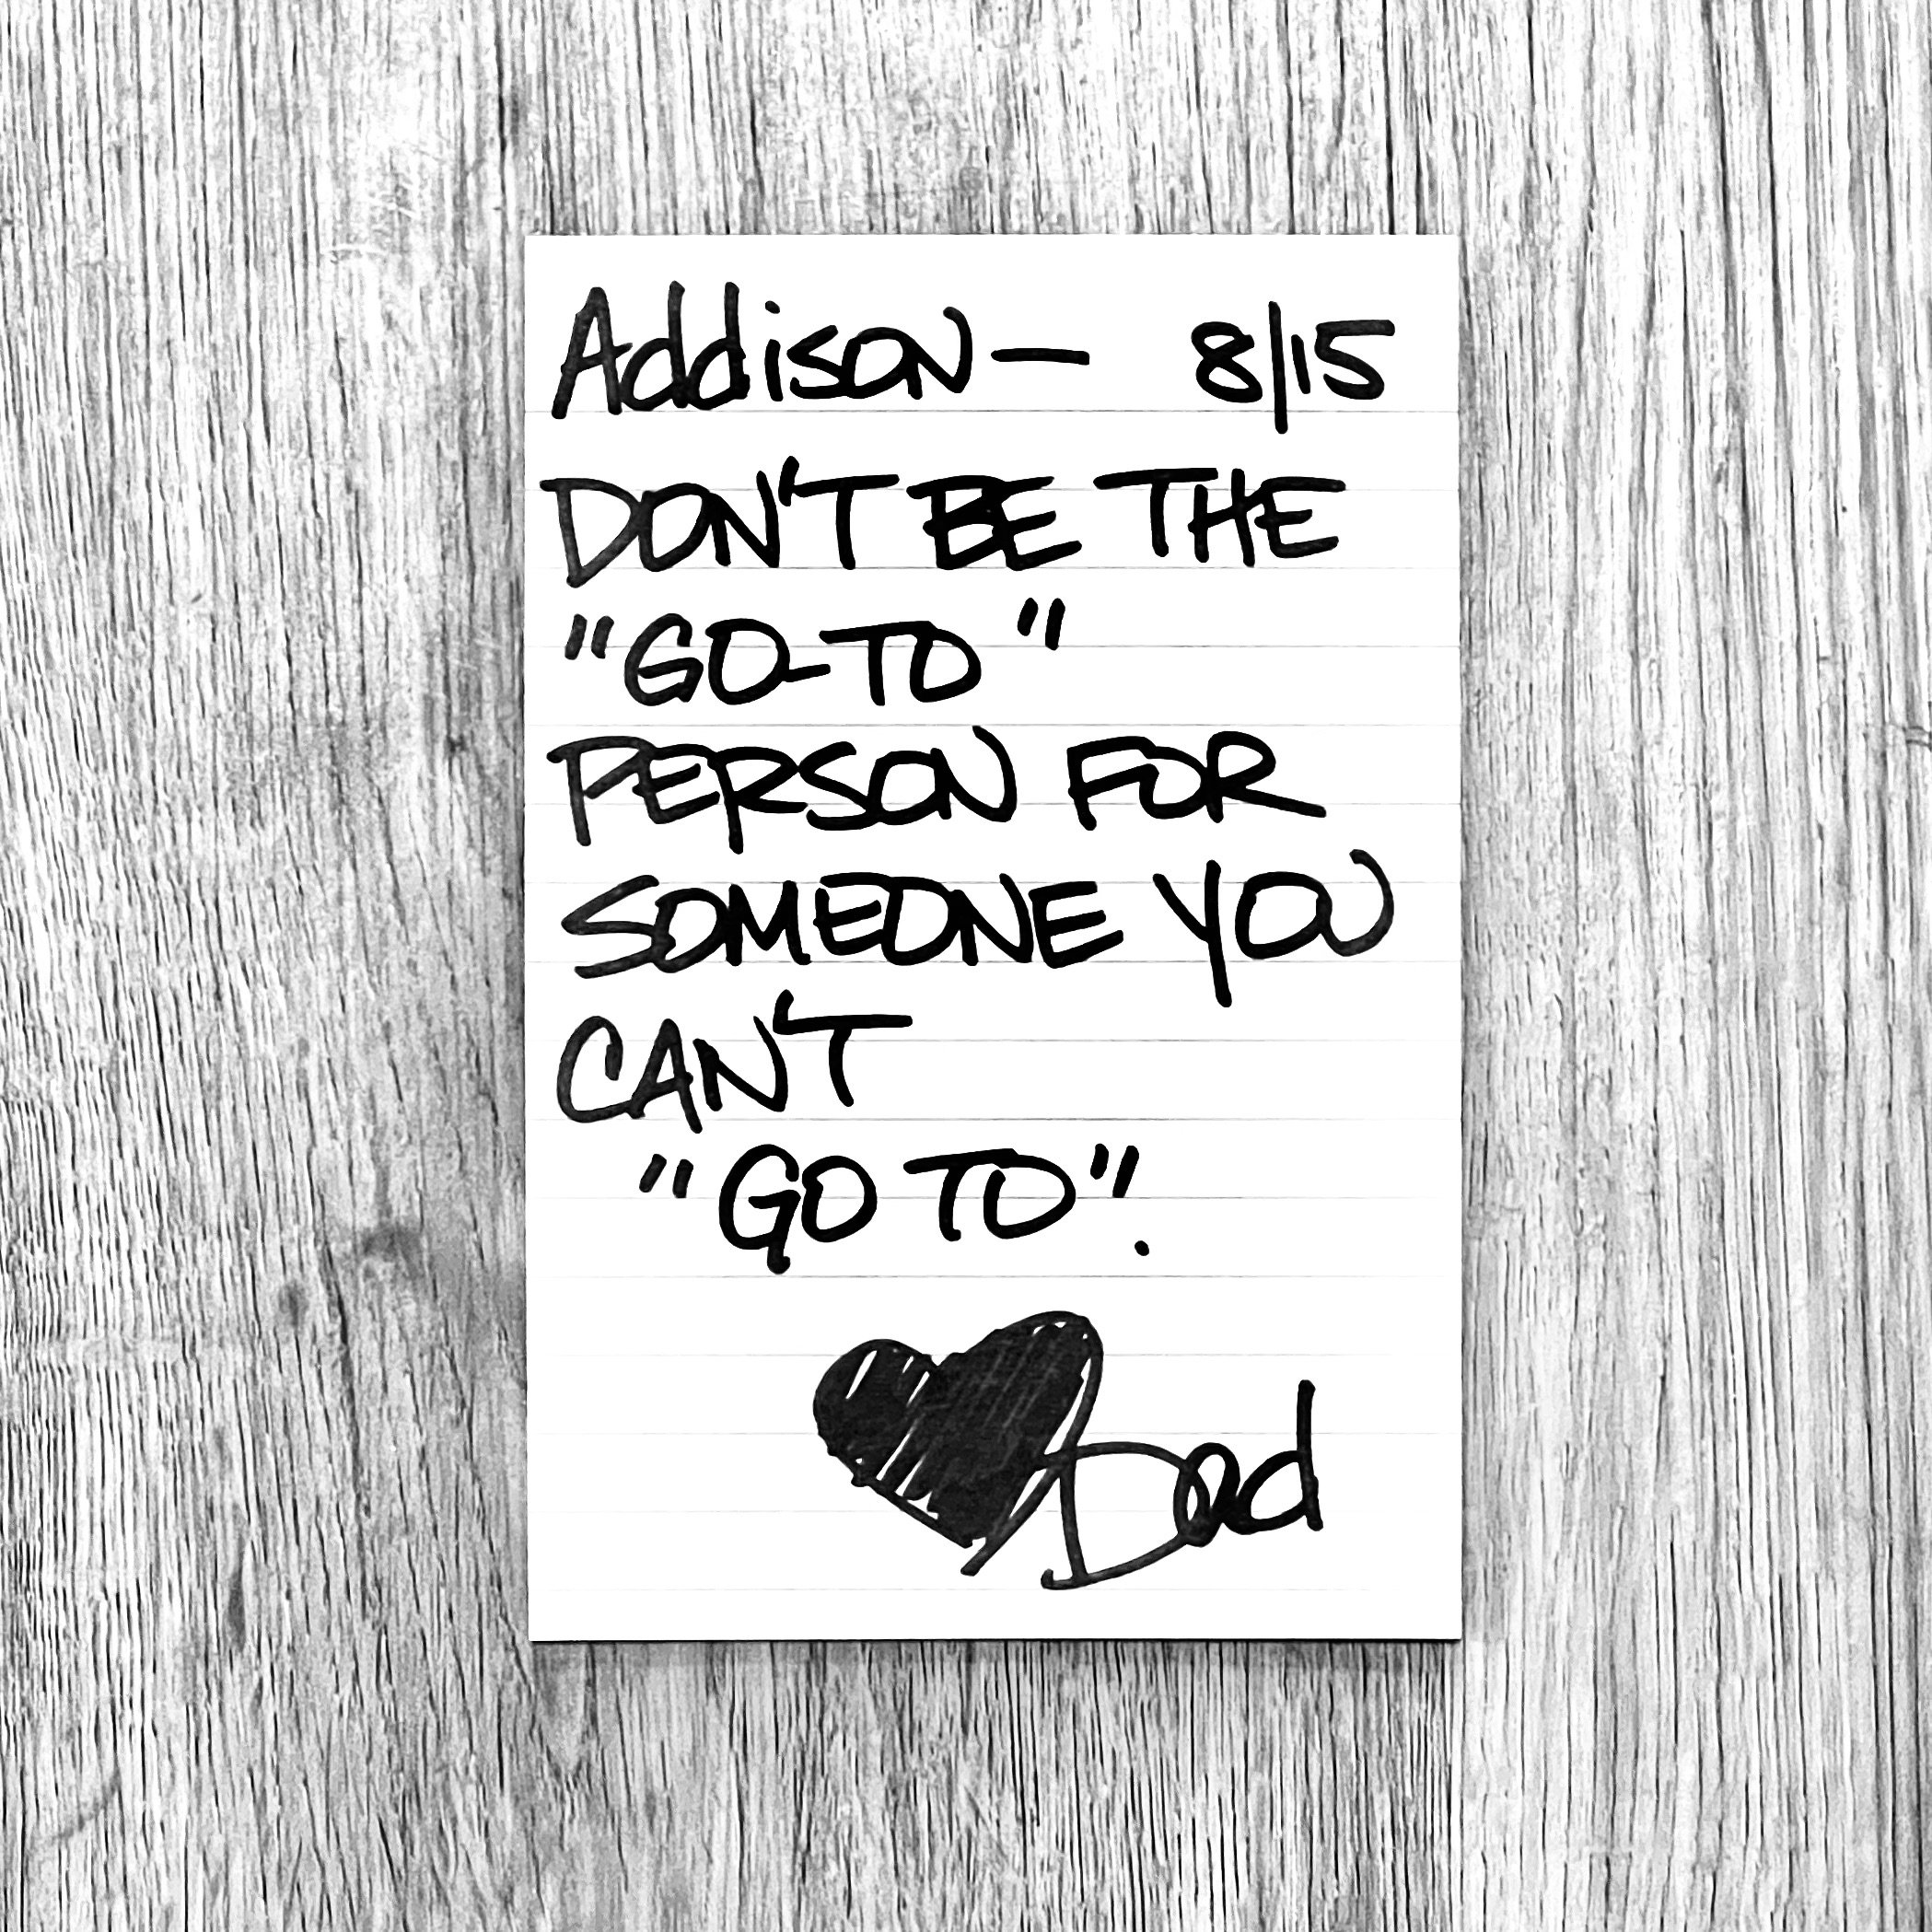 Addison— 8/15
DON'T BE THE
"GO-TO"
PERSON FOR
SOMEONE YOU
CAN'T
"GO TO".
Dad